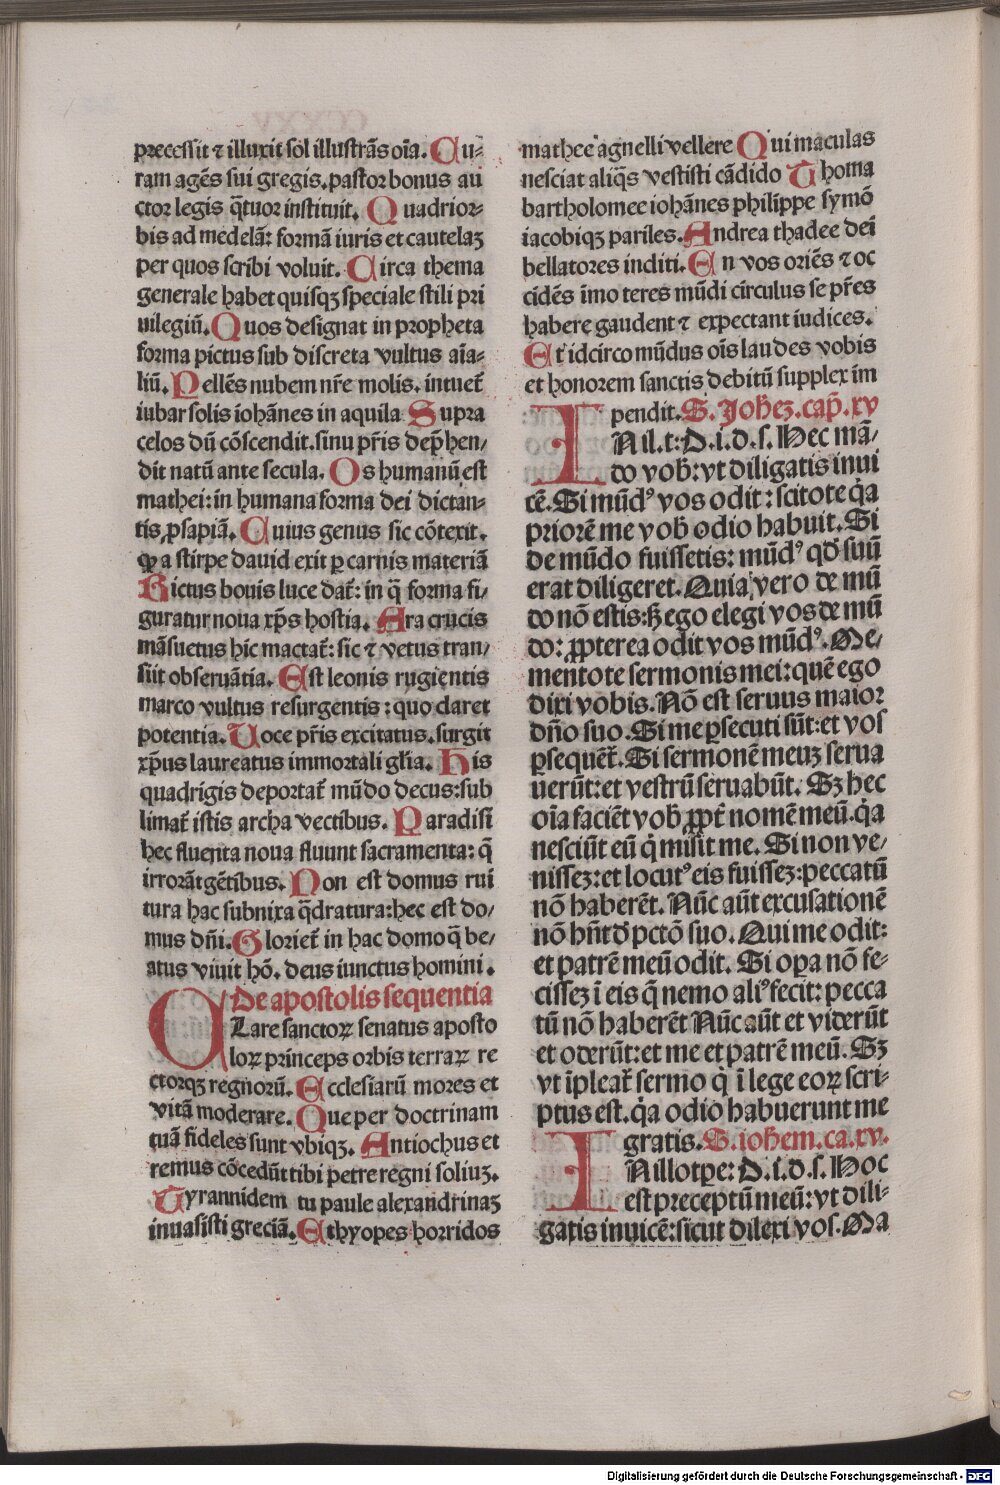 precessit ⁊ illuxit sol illustrãs oĩa. Cu⸗
ram agẽs sui gregis. pastor bonus au
ctor legis q̃tuor instituit. Quadrior⸗
bis ad medelã: formã iuris et cautelaꝫ
per quos scribi voluit. Circa thema
generale habet quisqꝫ speciale stili pri
uilegiũ. Quos designat in propheta
forma pictus sub discreta vultus aĩa⸗
liũ. Pellẽs nubem nr̃e molis. intuet̃
iubar solis iohãnes in aquila Supra
celos dũ cõscendit. sinu pr̃is dep̃hen/
dit natũ ante secula. Os humanũ est
mathei: in humana forma dei dictan⸗
tis ꝓsapiã. Cuius genus sic cõtexit.
ꝙ a stirpe dauid exit ꝑ carnis materiã
Rictus bouis luce dat̃: in q̃ forma fi/
guratur noua xp̃s hostia. Ara crucis
mãsuetus hic mactat̃: sic ⁊ vetus tran/
siit obseruãtia. Est leonis rugientis
marco vultus resurgentis: quo claret
potentia. Uoce pr̃is excitatus. surgit
xp̃us laureatus immortali gl̃ia. His
quadrigis deportat̃ mũdo decus: sub
limat̃ istis archa vectibus. Paradisi
hec fluenta noua fluunt sacramenta: q̃
irrorãt gẽtibus. Non est domus rui
tura hac subnixa q̃dratura: hec est do/
mus dñi. Gloriet̃ in hac domo q̃ be/
atus viuit hõ. deus iunctus homini.
De apostolis sequentia
CLare sanctoꝝ senatus aposto
loꝝ princeps orbis terraꝝ re
ctorqꝫ regnorũ. Ecclesiarũ mores et
vitã moderare. Que per doctrinam
tuã fideles sunt vbiqꝫ. Antiochus et
remus cõcedũt tibi petre regni soliuꝫ.
Tyrannidem tu paule alexandrinaꝫ
inuasisti greciã. Ethyopes horridos
mathee agnelli vellere Qui maculas
nesciat aliq̃s vestisti cãdido Thoma
bartholomee iohãnes philippe symõ
iacobiqꝫ pariles. Andrea thadee dei
bellatores incliti. En vos oriẽs ⁊ oc
cidẽs im̃o teres mũdi circulus se pr̃es
habere gaudent ⁊ expectant iudices.
Et idcirco mũdus oĩs laudes vobis
et honorem sanctis debitũ supplex im
pendit. S. Joh̃eꝫ. cap̃. xv
IN il. t: D. i. d. s. Hec mã/
do vob̃: vt diligatis inui
cẽ. Si mũdꝰ vos odit: scitote q̃a
priorẽ me vob̃ odio habuit. Si
de mũdo fuissetis: mũdꝰ qđ suũ
erat diligeret. Quia vero de mũ
do nõ estis: sꝫ ego elegi vos de mũ
do: ꝓpterea odit vos mũdꝰ. Me/
mentote sermonis mei: quẽ ego
dixi vobis. Nõ est seruus maior
dño suo. Si me ꝑsecuti sũt: et vos
ꝑsequẽt̃. Si sermonẽ meuꝫ serua
uerũt: et vestrũ seruabũt. Sꝫ hec
oĩa faciẽt vob̃ ꝓpt̃ nomẽ meũ. q̃a
nesciũt eũ q̃ misit me. Si non ve/
nisseꝫ: et locutꝰ eis fuisseꝫ: peccatũ
nõ haberẽt. Nũc aũt excusationẽ
nõ hñt đ pctõ suo. Qui me odit:
et patrẽ meũ odit. Si oꝑa nõ fe⸗
cisseꝫ ĩ eis q̃ nemo aliꝰ fecit: pecca
tũ nõ haberẽt Nũc aũt et viderũt
et oderũt: et me et patrẽ meũ. Sꝫ
vt ĩpleat̃ sermo q̃ ĩ lege eoꝝ scri⸗
ptus est. q̃a odio habuerunt me
gratis. S. ioh̃em. ca. xv.
IN illo tꝑe: D. i. d. s. Hoc
est preceptũ meũ: vt dili⸗
gatis inuicẽ: sicut dilexi vos. Ma
Digitalisierung gefördert durch die Deutsche Forschungsgemeinschaft - DFG